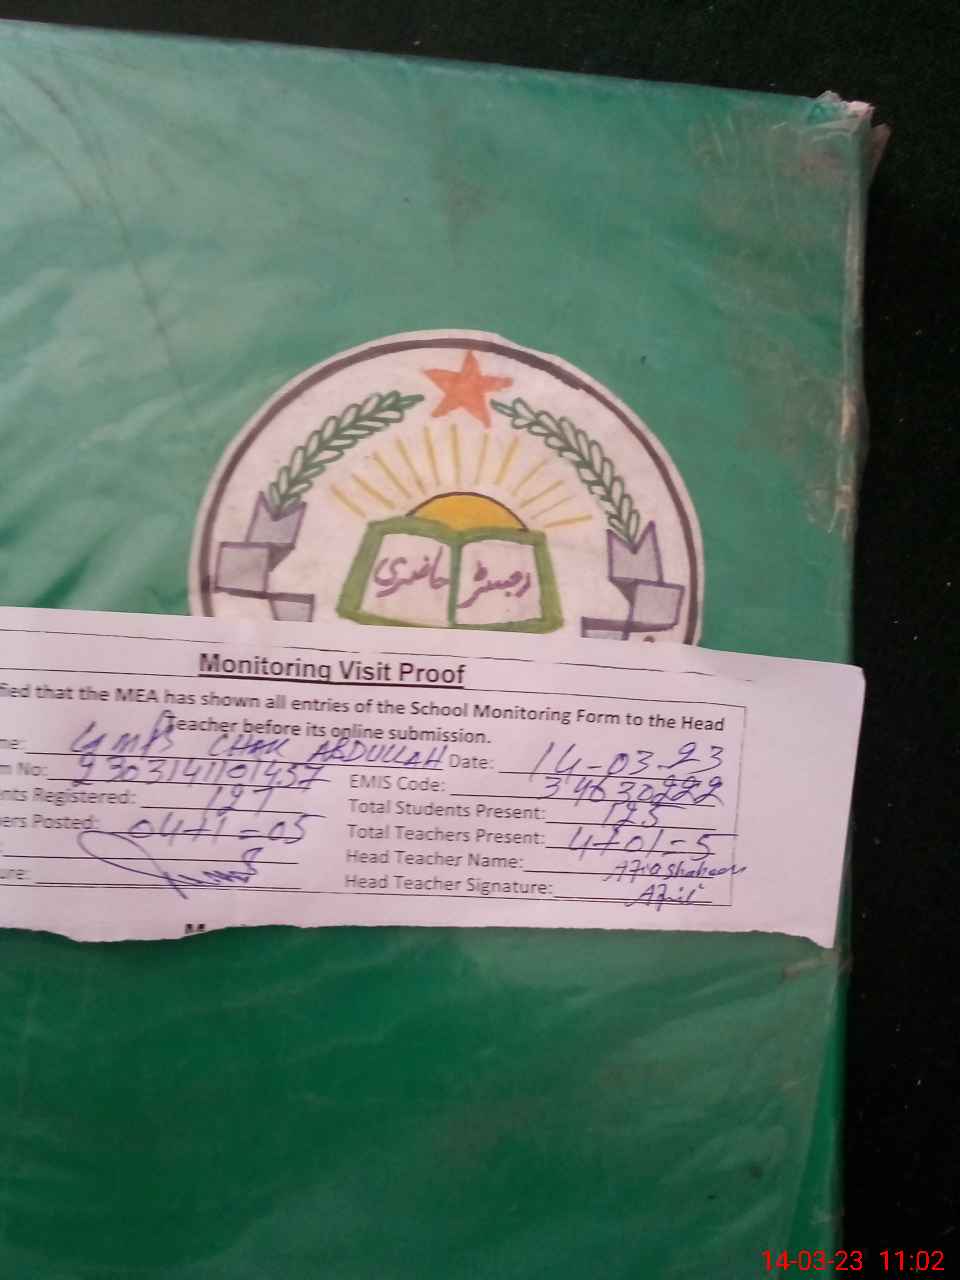 رجسٹر حاضری
Monitoring Visit Proof
fied that the MEA has shown all entries of the School Monitoring Form to the Head
Teacher before its online submission.
me: GMPS CHAK ABDULLAH Date: 14-03-23
m No: 2303141101457 EMIS Code: 34630222
nts Registered: 127 Total Students Present: 125
ers Posted: 04+1=05 Total Teachers Present: 4+01=5
: Head Teacher Name: Shaheen
ure: Head Teacher Signature:
M
14-03-23 11:02